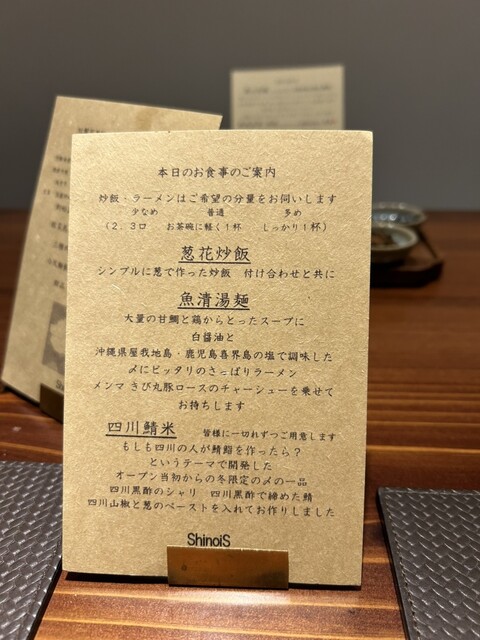 本日のお食事のご案内
炒飯・ラーメンはご希望の分量をお伺いします
少なめ 普通 多め
(2、3口 お茶碗に軽く1杯 しっかり1杯)
葱花炒飯
シンプルに葱で作った炒飯 付け合わせと共に
魚清湯麺
大量の甘鯛と鶏からとったスープに
白醤油と
沖縄県屋我地島・鹿児島喜界島の塩で調味した
〆にピッタリのさっぱりラーメン
メンマ きび丸豚ロースのチャーシューを乗せて
お持ちします
四川鯖米 皆様に一切れずつご用意します
もしも四川の人が鯖鮨を作ったら?
というテーマで開発した
オープン当初からの冬限定の〆の一品
四川黒酢のシャリ 四川黒酢で締めた鯖
四川山椒と葱のペーストを入れてお作りしました
ShinoiS